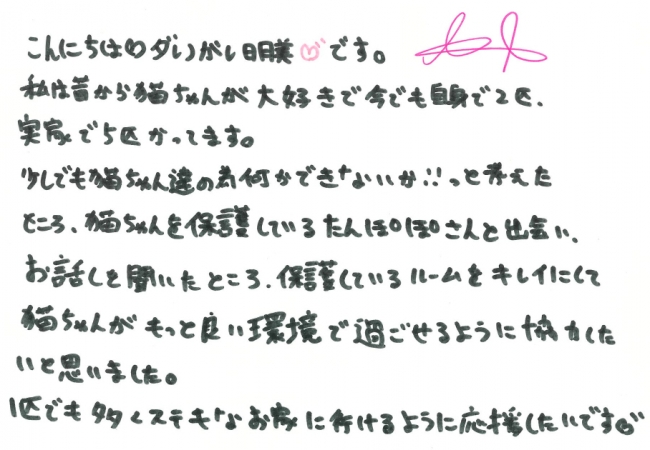 こんにちは♡ダレノガレ明美♡です。
私は昔から猫ちゃんが大好きで今でも自身で2匹、
実家で5匹かってます。
少しでも猫ちゃん達の為何かできないか!!っと考えた
ところ、猫ちゃんを保護しているたんぽぽさんと出会い、
お話しを聞いたところ、保護しているルームをキレイにして
猫ちゃんがもっと良い環境で過ごせるように協力した
いと思いました。
1匹でも多くステキなお家に行けるように応援したいです♡